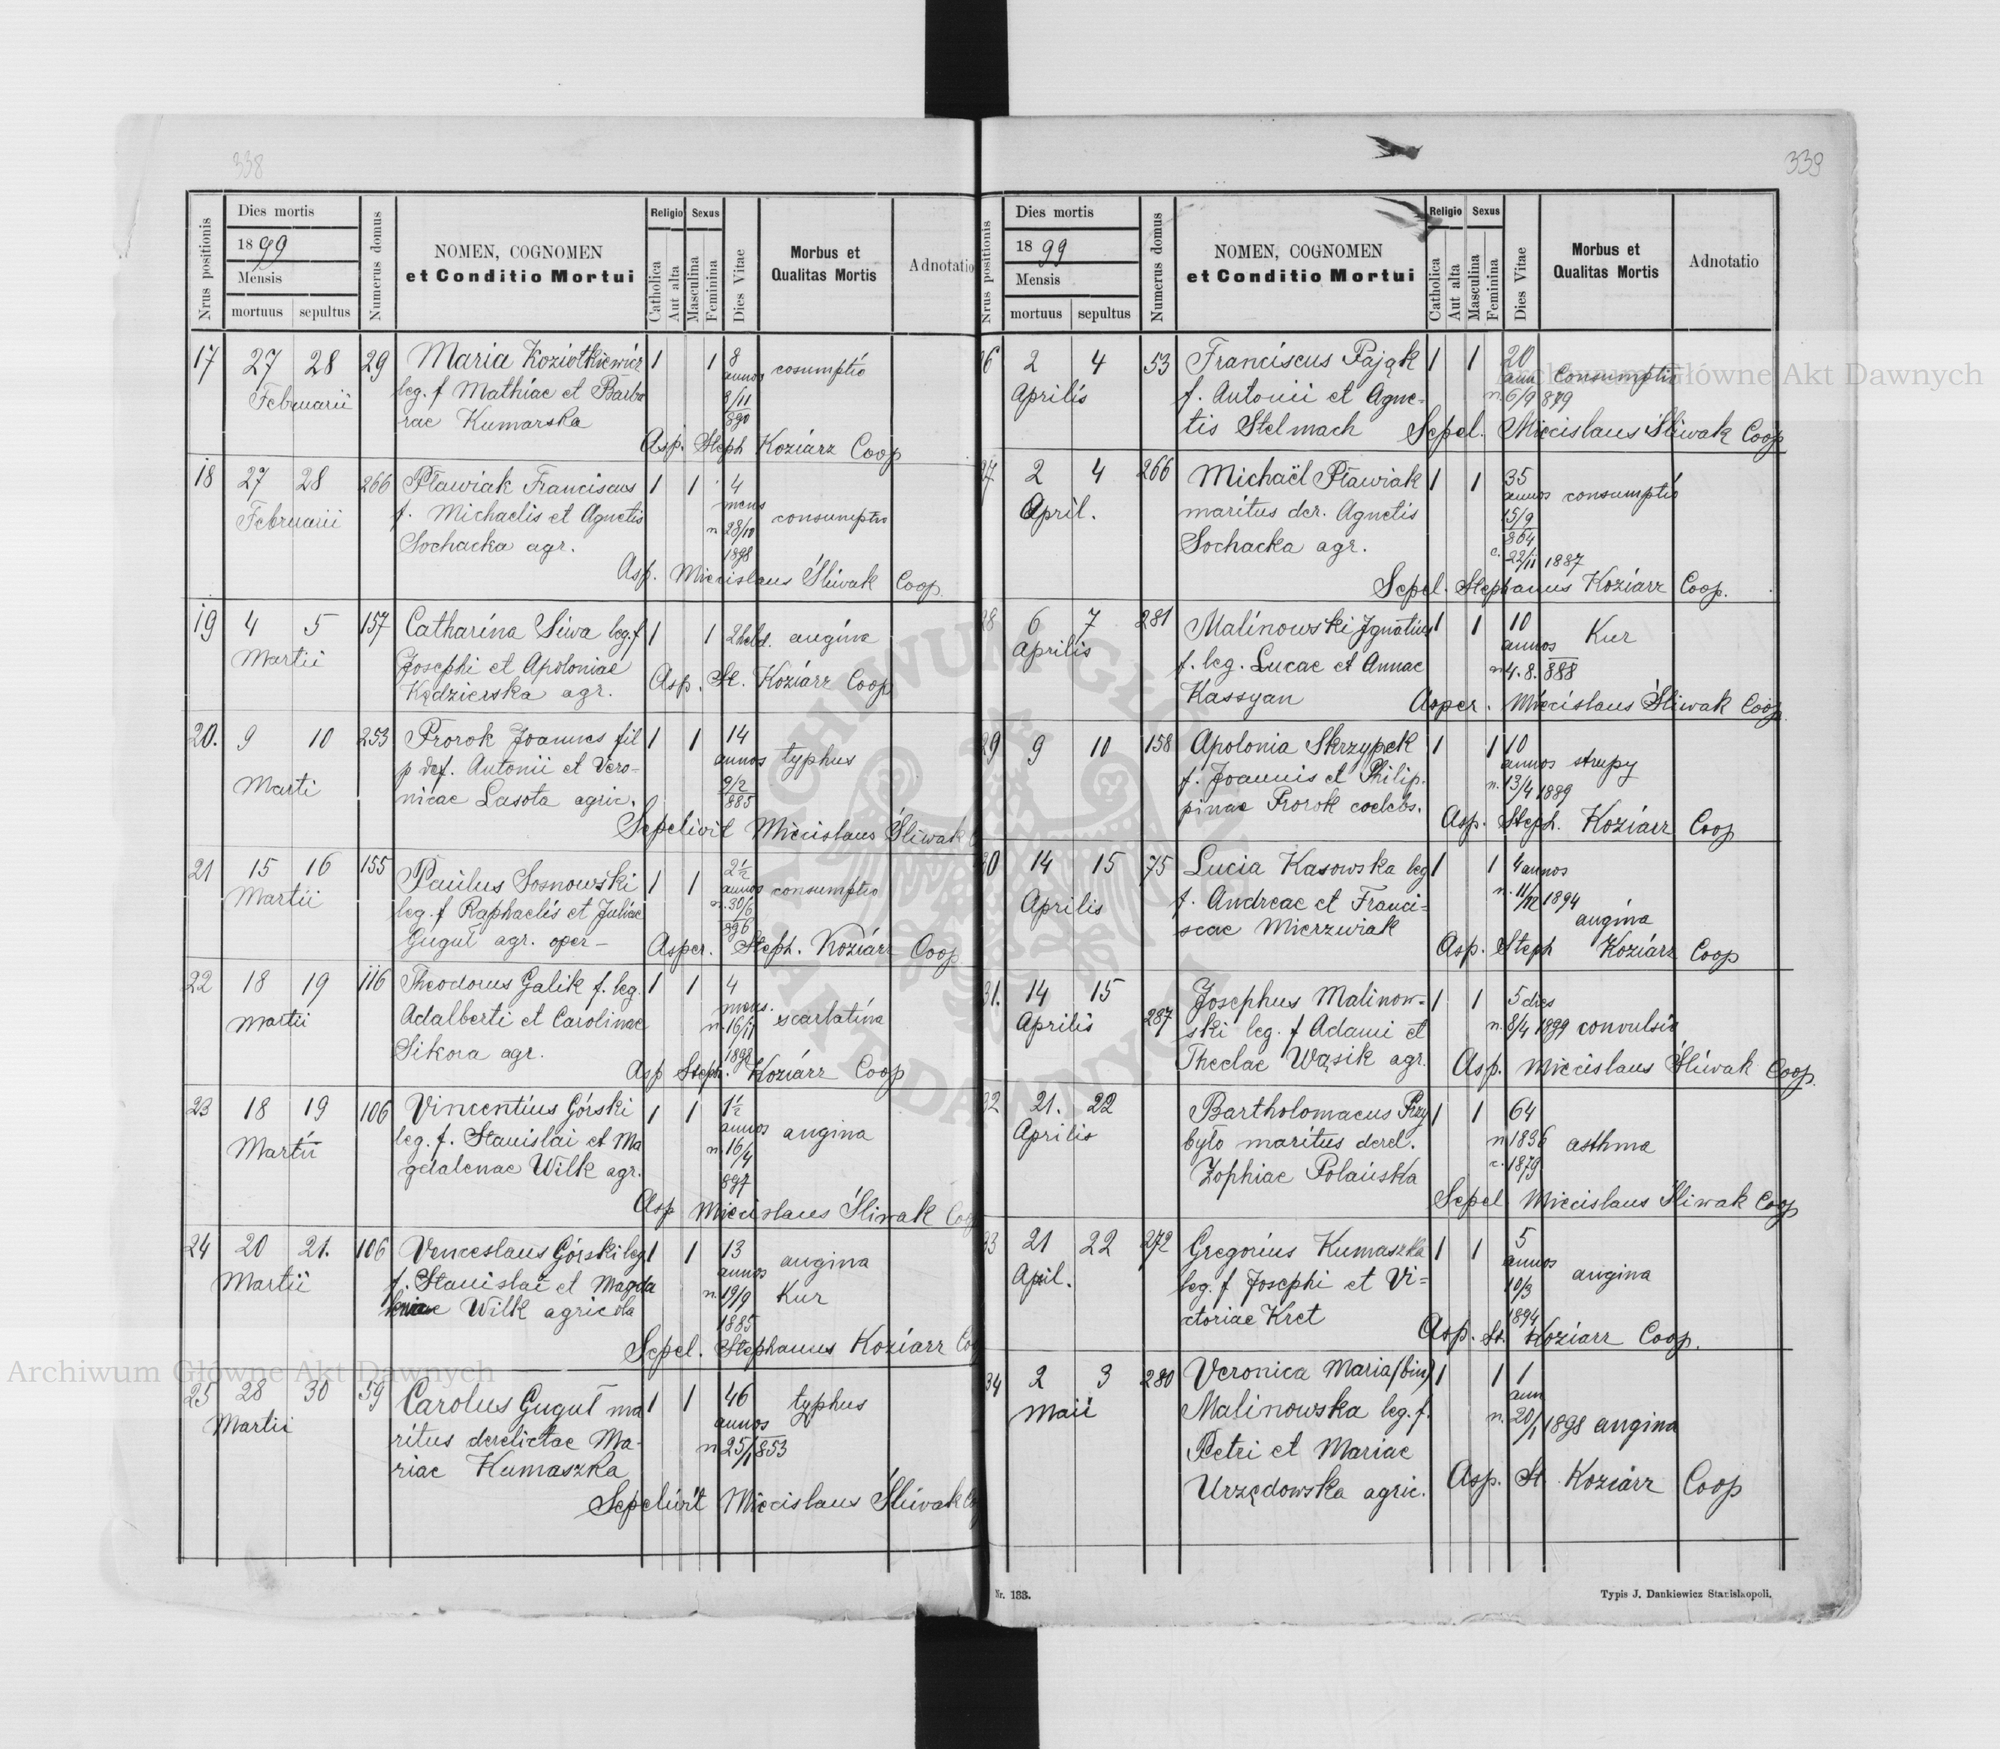 338
Nrus positionis
Dies mortis
1899
Mensis
mortuus sepultus
Numerus domus
NOMEN, COGNOMEN
et Conditio Mortui
Religio Sexus
Catholica
Aut alta
Masculina
Feminina
Dies Vitae
Morbus et
Qualitas Mortis
Adnotatio
17 27 28 29 Maria Koziołkiewicz 1 1 8 cosumptio
Februarii leg. f Mathiae et Barba annos
rae Kumarska 8/11
890
Asp. Steph Koziarz Coop
18 27 28 266 Pławiak Franciscus 1 1 4
Februarii f. Michaelis et Agnetis mens consumptio
Sochacka agr. n. 28/10
1898
Asp. Miecislaus Śliwak Coop.
19 4 5 157 Catharina Siwa leg. f 1 1 2 hebd. angina
Martii Josephi et Apoloniae
Kędzierska agr.
Asp. St. Koziarz Coop
20. 9 10 253 Prorok Joannes fil 1 1 14
Marti p def. Antonii et Vero- annos typhus
nicae Lasota agric. 9/2
885
Sepelivit Miecislaus Śliwak C
21 15 16 155 Paulus Sosnowski 1 1 2½
Martii leg. f Raphaelis et Juliae annos consumptio
Guguł agr. oper- n. 30/6
896
Asper. Steph. Koziarz Coop
22 18 19 116 Theodorus Galik f. leg. 1 1 4
Martii Adalberti et Carolinae mens. scarlatina
Sikora agr. n. 16/11
1898
Asp Steph. Koziarz Coop
23 18 19 106 Vincentius Górski 1 1 1½
Martii leg. f. Stanislai et Ma annos angina
gdalenae Wilk agr. n. 16/4
897
Asp Miecislaus Śliwak Coop
24 20 21. 106 Venceslaus Górski leg 1 1 13 angina
Martii f. Stanislai et Magda annos
lenae Wilk agricola n. 19/9 Kur
1885
Sepel. Stephanus Koziarz Coo
25 28 30 59 Carolus Guguł ma 1 1 46 typhus
Martii ritus derelictae Ma- annos
riae Kumaszka n 25/1 853
Sepelivit Miecislaus Śliwak Co
339
Nrus positionis
Dies mortis
1899
Mensis
mortuus sepultus
Numerus domus
NOMEN, COGNOMEN
et Conditio Mortui
Religio Sexus
Catholica
Aut alta
Masculina
Feminina
Dies Vitae
Morbus et
Qualitas Mortis
Adnotatio
26 2 4 53 Franciscus Pająk 1 1 20
Aprilis f. Antonii et Agne- ann consumptio
tis Stelmach n. 6/9 879
Sepel. Miecislaus Śliwak Coop
27 2 4 266 Michaël Pławiak 1 1 35
April. maritus der. Agnetis annos consumptio
Sochacka agr. 15/9
864
c. 22/11 1887
Sepel. Stephanus Koziarz Coop.
28 6 7 281 Malinowski Ignatius 1 1 10
Aprilis f. leg. Lucae et Annae annos Kur
Kassyan n 4. 8. 888
Asper. Miecislaus Śliwak Coop
29 9 10 158 Apolonia Skrzypek 1 1 10
f. Joannis et Philip- annos strupy
pinae Prorok coelebs. n. 13/4 1889
Asp. Steph. Koziarz Coop
30 14 15 75 Lucia Kasowska leg 1 1 4 annos
Aprilis f. Andreae et Franci- n. 11/12 1894
scae Mierzwiak angina
Asp. Steph Koziarz Coop
31. 14 15 287 Josephus Malinow- 1 1 5 dies
Aprilis ski leg. f Adami et n. 8/4 1899 convulsio
Theclae Wąsik agr.
Asp. Miecislaus Śliwak Coop.
32 21. 22 Bartholomaeus Przy 1 1 64
Aprilis było maritus derel. n 1836 asthma
Zophiae Polańska c. 1879
Sepel Miecislaus Śliwak Coop
33 21 22 272 Gregorius Kumaszka 1 1 5
April. leg. f Josephi et Vi- annos angina
ctoriae Kret 10/3
1894
Asp. St. Koziarz Coop.
34 2 3 280 Veronica Maria (bin) 1 1 1
Maii Malinowska leg. f. ann
Petri et Mariae n. 20/1 1898 angina
Urzędowska agric.
Asp. St. Koziarz Coop
Nr. 133.
Typis J. Dankiewicz Stanislaopoli.
Archiwum Główne Akt Dawnych
Archiwum Główne Akt Dawnych
ARCHIWUM GŁÓWNE AKT DAWNYCH